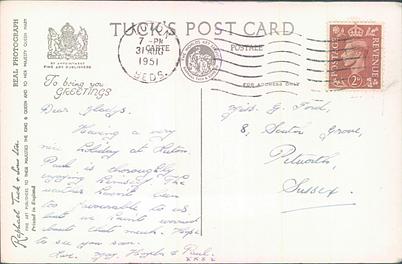 TUCK'S POST CARD
CARTE POSTALE
BY APPOINTMENT
FINE ART PUBLISHERS
FOR ADDRESS ONLY
7 - PM
31 AUG
1951
BEDS.
POSTAGE REVENUE
2D
REAL PHOTOGRAPH
Raphael Tuck & Sons Ltd.
FINE ART PUBLISHERS TO THEIR MAJESTIES THE KING & QUEEN AND TO HER MAJESTY QUEEN MARY
Printed in England
To bring you
GREETINGS
Dear Gladys.
Having a very
nice holiday at
Paul is thoroughly
enjoying himself. The
weather hasn't been
too favourable to us
but we haven't worried
about that much. Hope
to see you soon.
Love. & Paul.
xxxx
Miss. G. Ford,
8, Grove,
Petworth,
Sussex.